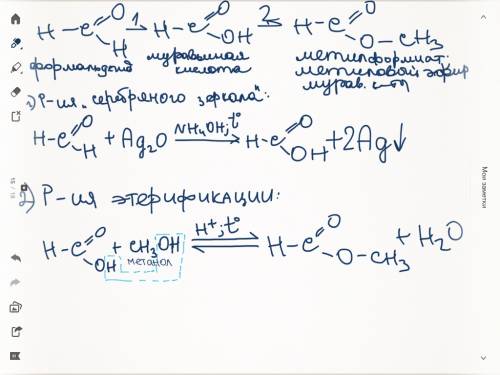 H-C=O H 1→ H-C=O OH 2→ H-C=O O-CH₃
формальдегид муравьиная кислота метилформиат: метиловый эфир мурав. к-ты
1) Р-ия "серебряного зеркала":
H-C=O H + Ag₂O NH₄OH; t° → H-C=O OH + 2Ag↓
2) Р-ия этерификации:
H-C=O OH + CH₃OH H⁺; t° ⇌ H-C=O O-CH₃ + H₂O
метанол
Мои заметки